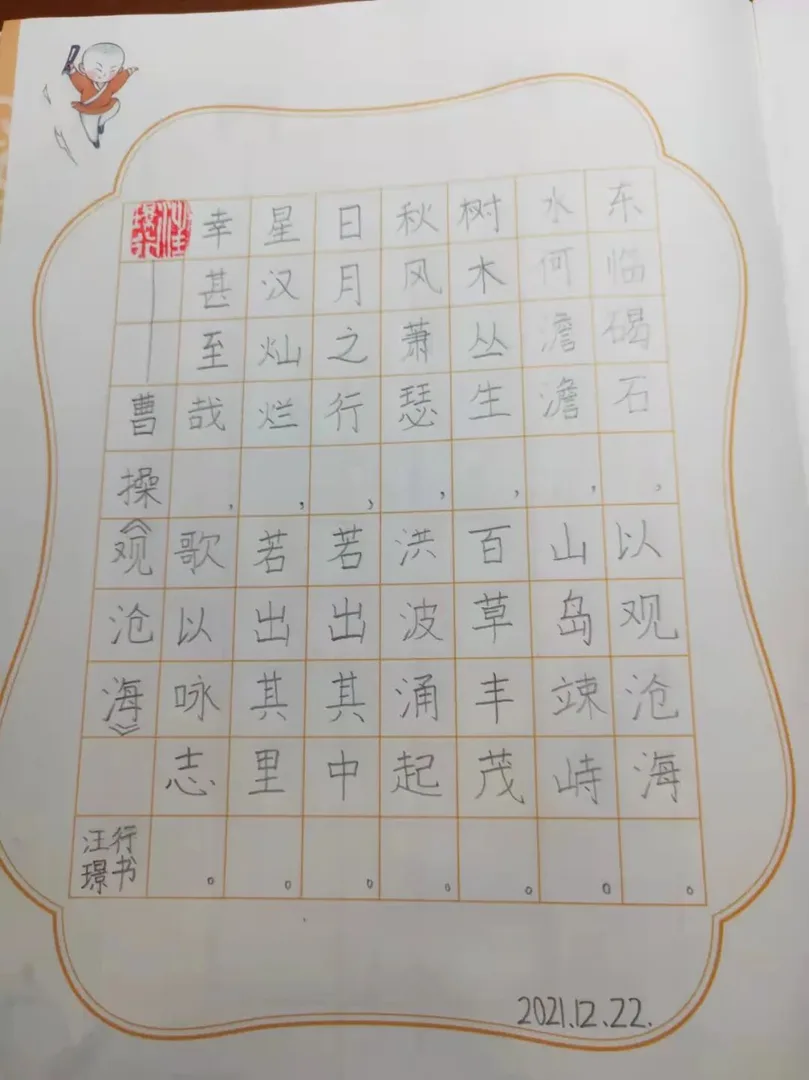 东临碣石，以观沧海。
水何澹澹，山岛竦峙。
树木丛生，百草丰茂。
秋风萧瑟，洪波涌起。
日月之行，若出其中。
星汉灿烂，若出其里。
幸甚至哉，歌以咏志。
——曹操《观沧海》
汪璟行书
2021.12.22.